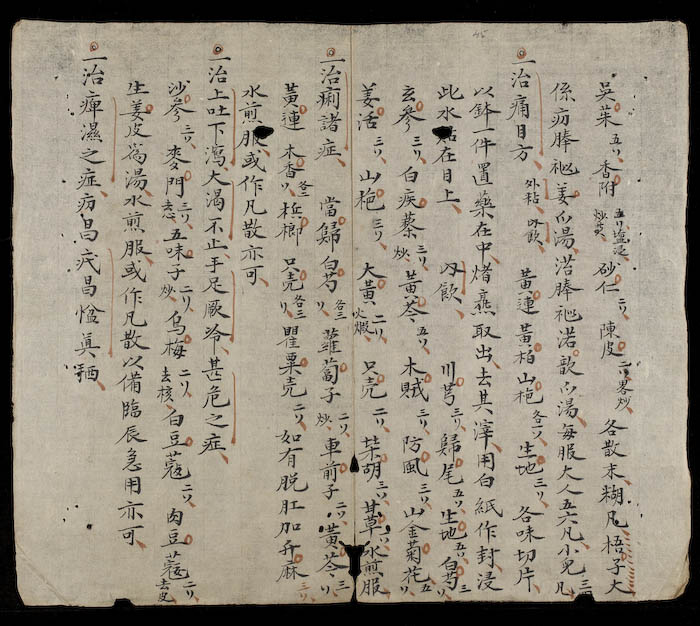 吳茱五リ香附五リ塩浸炒黃砂仁二リ陳皮二リ畧炒各散末糊凡梧子大
係疠姜湯湯每服大人五六凡小児凡三
一治痛目方外粘内飲黃連黃柏山梔各二リ生地三リ各味切片
以鉢一件置藥在中取出去其滓用白紙作封浸
此水粘在目上内飲川芎三リ歸尾五リ生地五リ白芍三リ
玄參三リ白疾藜炒三リ黃芩五リ木賊三リ防風三リ山金菊花五リ
姜活三リ山梔三リ大黃二リ火煅只壳二リ柴胡三リ甘草二リ水煎服
一治痢諸症當歸白芍各三リ蘿蔔子炒二リ車前子二リ黃芩三リ
黃連木香各二リ梹榔只壳各三リ瞿粟壳二リ如有脱肛加升麻三リ
水煎服或作凡散亦可
一治上吐下瀉大渴不止手足厥冷甚危之症
沙參三リ麥門三リ五味子二リ炒烏梅二リ去核白豆蔻二リ肉豆蔻二リ去皮
生姜皮為湯水煎服或作凡散以備臨辰急用亦可
一治痺濕之症疠昌昌真